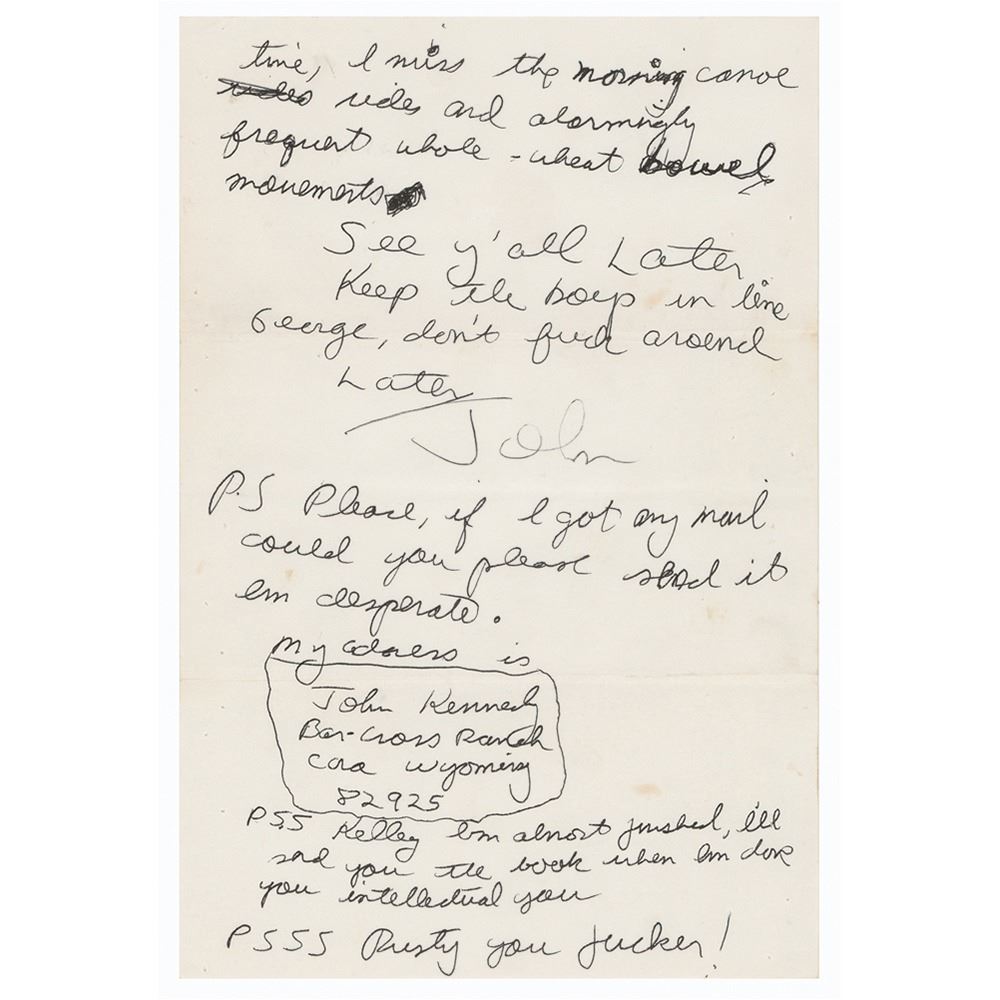 time, I miss the morning canoe
rides rides and alarmingly
frequent whole-wheat bowel
movements
See y'all Later.
Keep the boys in line
George, don't fuck around
Later
John
P.S Please, if I got any mail
could you please send it
em desperate.
My adress is
John Kennedy
Bar-Cross Ranch
Cora Wyoming
82925
PSS Kelley Em almost finished, I'll
send you the book when Em done
you intellectual you
PSSS Rusty you fucker!